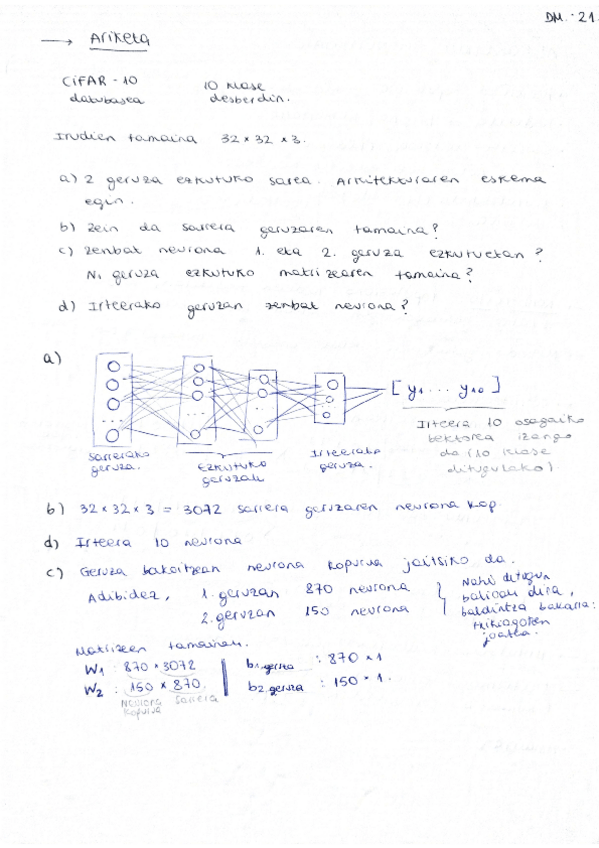 DM. - 21.
→ Ariketa
CIFAR - 10 10 klase
datubasea desberdin.
Irudien tamaina 32 × 32 × 3.
a) 2 geruza ezkutuko sarea. Arkitekturaren eskema
egin.
b) Zein da sarrera geruzaren tamaina?
c) Zenbat neurona 1. eta 2. geruza ezkutuetan?
N. geruza ezkutuko matrizearen tamaina?
d) Irteerako geruzan zenbat neurona?
a)
[ y1 ... y10 ]
Sarrerako geruza.
Ezkutuko geruzak
Irteerako geruza.
Irteera 10 osagaiko
bektorea izango
da (10 klase
ditugulako).
b) 32 × 32 × 3 = 3072 sarrera geruzaren neurona kop.
d) Irteera 10 neurona
c) Geruza bakoitzean neurona kopurua jaitsiko da.
Adibidez, 1. geruzan 870 neurona
2. geruzan 150 neurona
Nahi ditugun
balioak dira,
baldintza bakarra:
txikiagotzen
joatea.
Matrizeen tamainak.
W1 : 870 × 3072 b1.geruza : 870 × 1
W2 : 150 × 870. b2.geruza : 150 × 1.
Neurona kopurua
sarrera